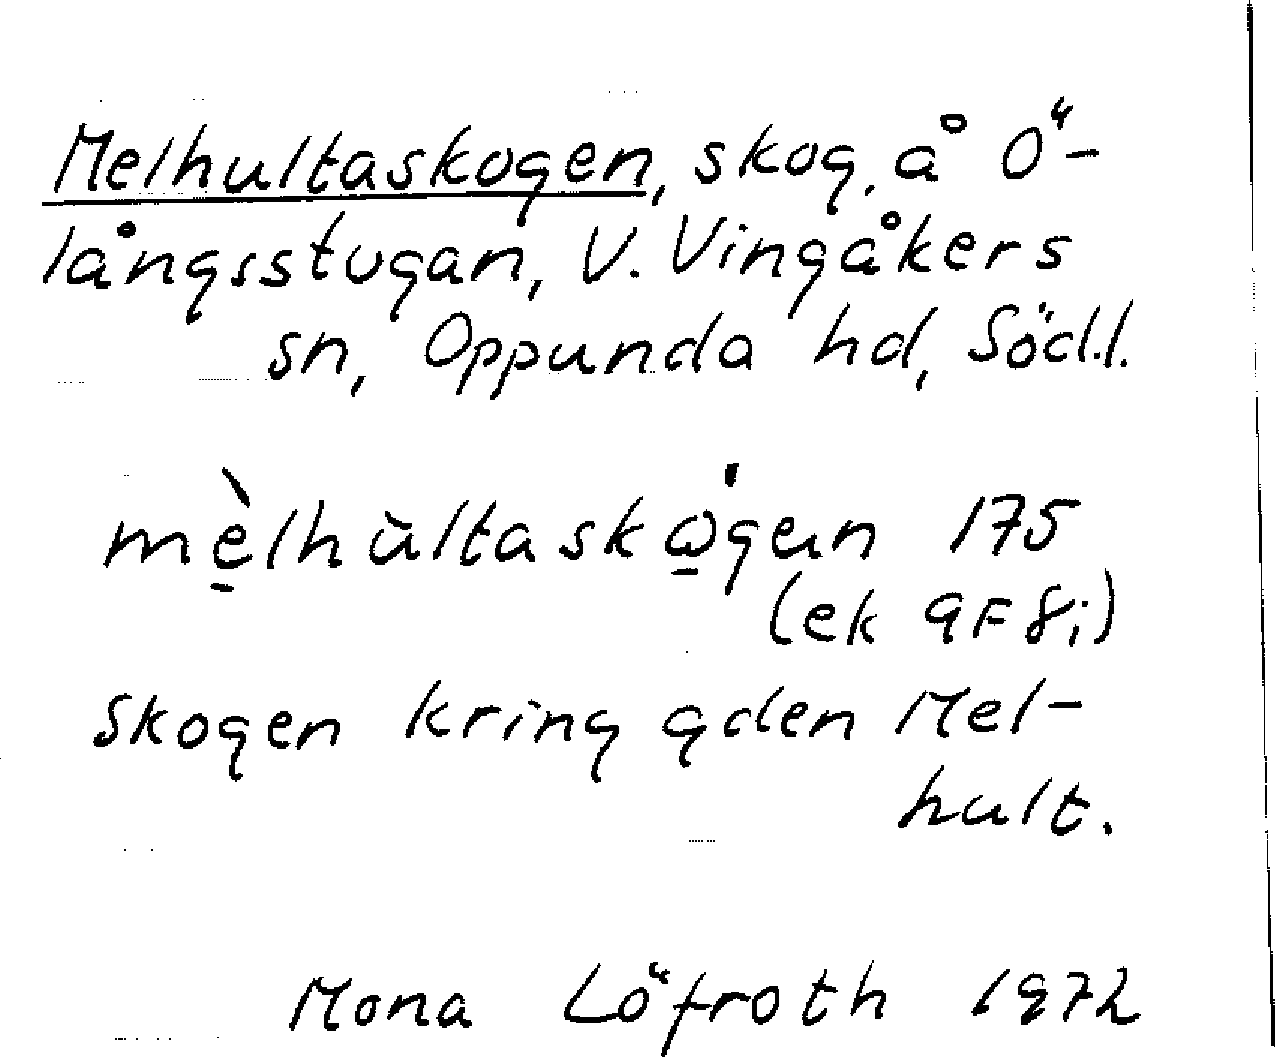 Melhultaskogen, skog, å Ö-
långsstugan, V. Vingåkers
sn, Oppunda hd, Södl.
mè̱lhùltaskώ̱gen 175
(ek 9F8i)
Skogen kring gden Mel-
hult.
Mona Löfroth 1972